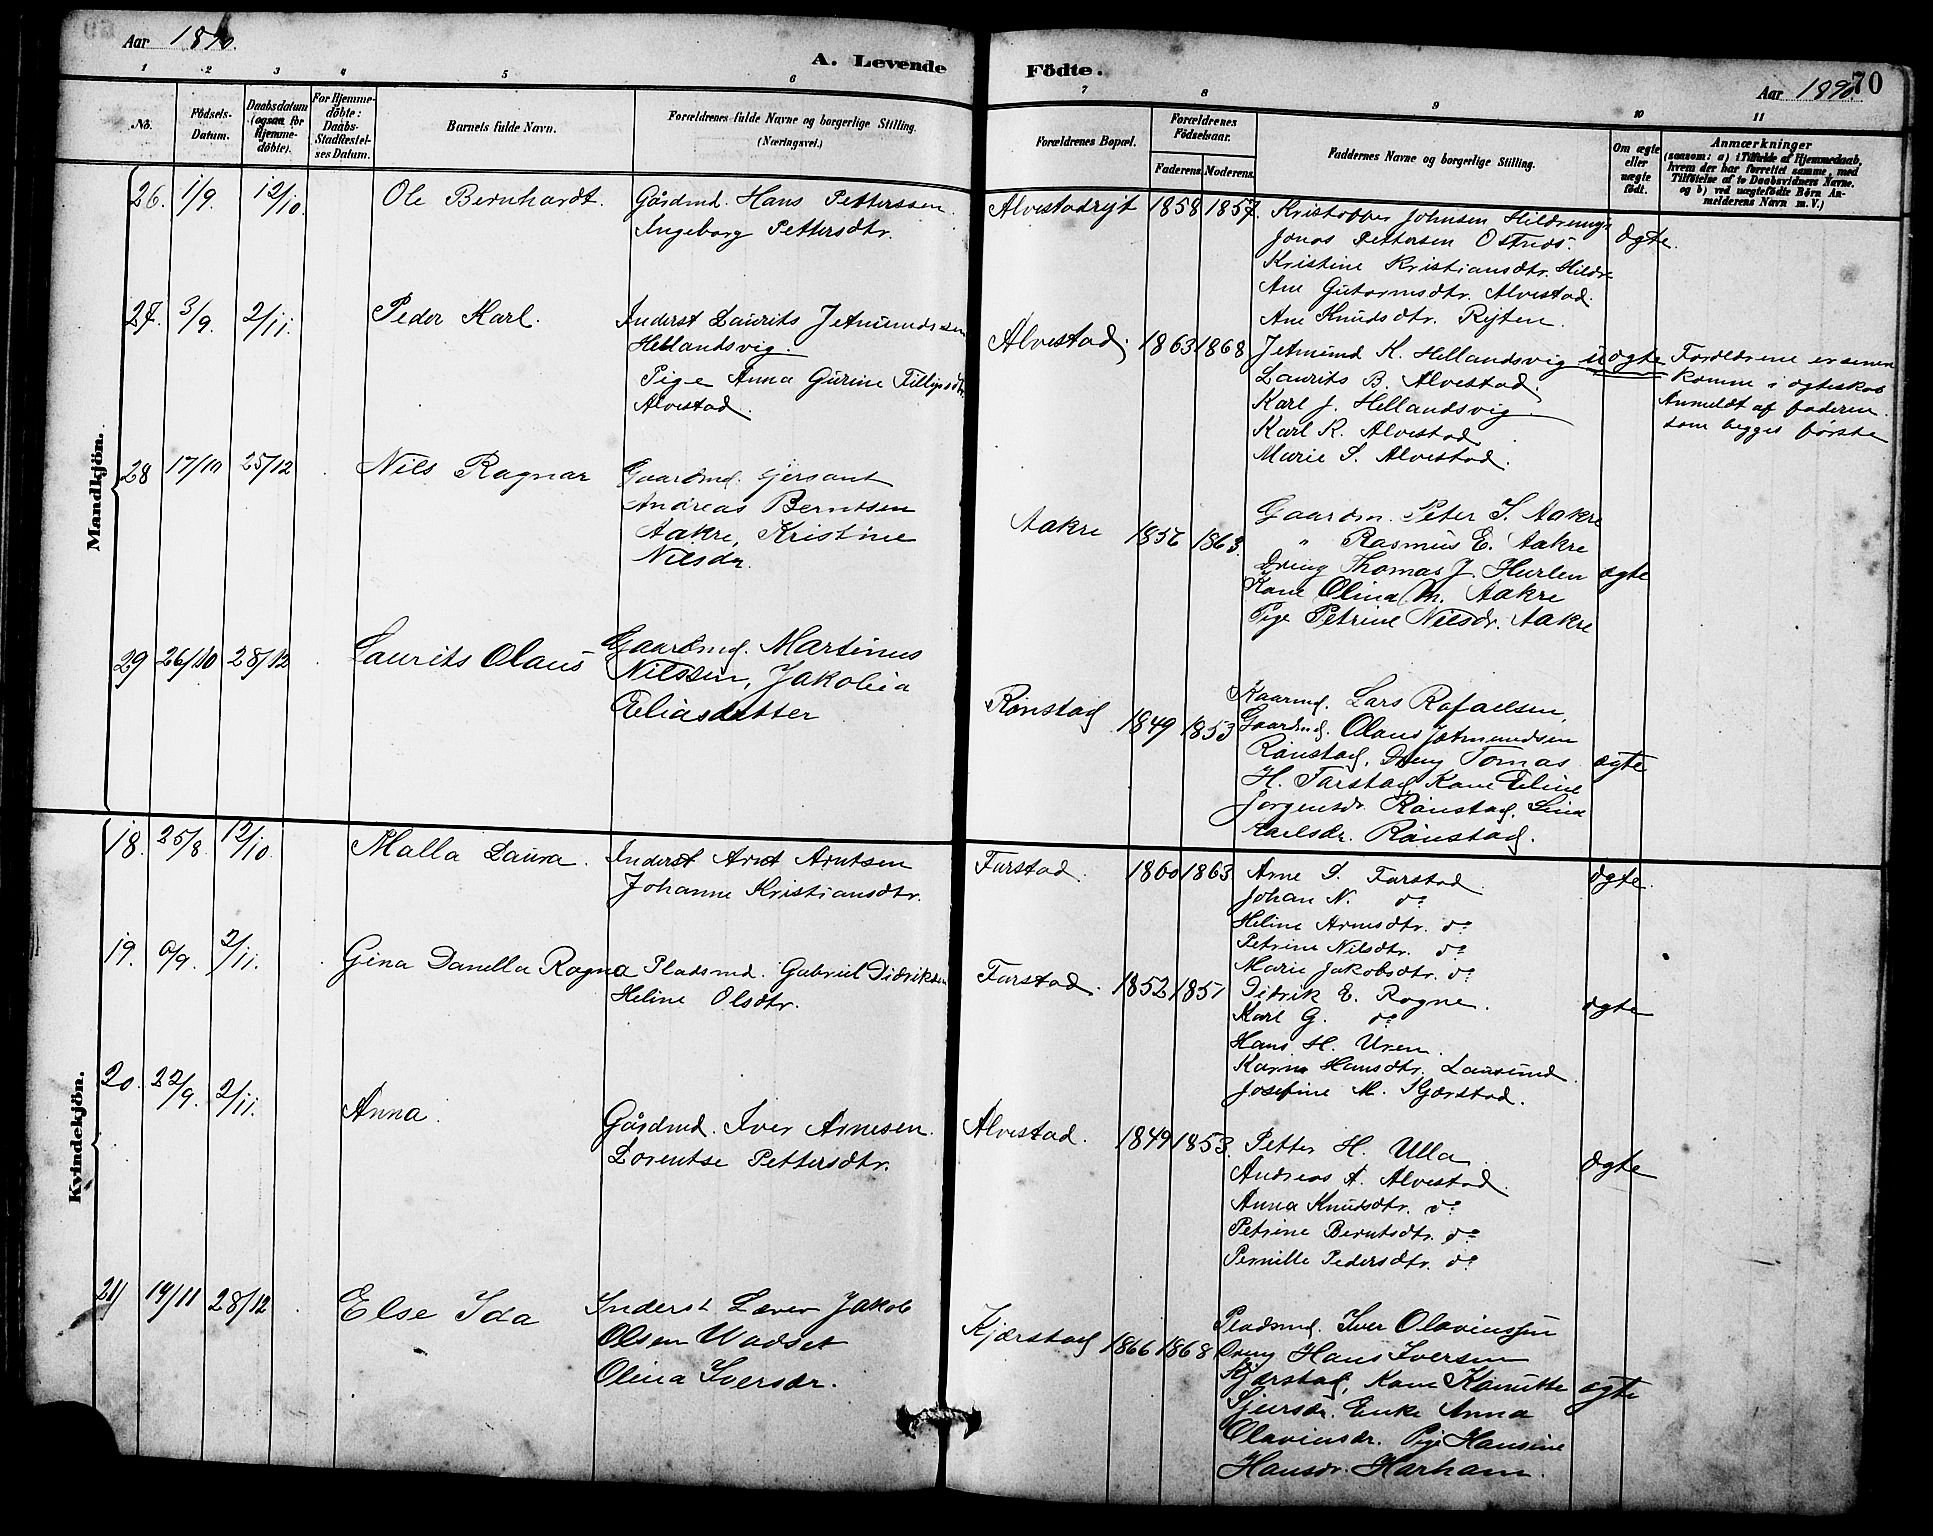 Aar 1890.
A. Levende
Födte.
Aar 1890.
70
1 2 3 4 5 6 7 8 9 10 11
No.
Födsels-
Datum.
Daabsdatum
(ogsaa for
Hjemme-
döbte).
For Hjemme-
döbte:
Daabs-
Stadfæstel-
ses Datum.
Barnets fulde Navn.
Forældrenes fulde Navne og borgerlige Stilling.
(Næringsvei.)
Forældrenes Bopæl.
Forældrenes
Födselsaar.
Faderens Moderens.
Faddernes Navne og borgerlige Stilling.
Om ægte
eller
uægte
født.
Anmærkninger
(saasom: a) i Tilfælde af Hjemmedaab,
hvem der har forrettet samme, med
Tilföielse af to Daabsvidners Navne.
og b) ved uægtefödte Börn An-
melderens Navn m. V.)
Mandkjön.
26. 1/9. 12/10. Ole Bernhardt.
Gårdmd. Hans Petterssen.
Ingeborg Pettersdtr.
Alvestadrejt 1858 1857.
Kristoffer Johnsen Hildreung
Jonas Pettersen Ostnes.
Kristine Kristiansdtr. Hildre
Ane Gutormsdtr. Alvestad.
Ane Knudsdtr. Rejten.
ægte.
27. 3/9. 2/11. Peder Karl.
Inderst Laurits Jetmundssen
Hellandsvig.
Pige Anna Gurine Fillipsdtr.
Alvestad.
Alvestad. 1863 1868
Jetmund K. Hellandsvig
Laurits B. Alvestad.
Karl J. Hellandsvig
Karl K. Alvestad
Marie S. Alvestad.
uægte
Forældrene er senere
komne i ægteskab
Anmeldt af faderen.
som begges første
28 17/10 25/12 Nils Ragnar
Gaardmd. Gersant
Andreas Berntsen
Aakre, Kristine
Nilsdr.
Aakre 1856 1863.
Gaardm. Peter S. Aakre
" Rasmus E. Aakre
Dreng Thomas J. Hurlen
Kone Olina M. Aakre
Pige Petrine Nilsdr. Aakre
ægte
29 26/10 28/12 Laurits Olaus
Gaardmd. Martinus
Nilssen, Jakobia
Eliasdatter
Rønstad 1849 1853
Kaarmd. Lars Rafaelsen,
Gaardmd. Olaus Jetmundsen
Rønstad, Dreng Tomas
H. Farstad, Kone Eline
Jørgensdr. Rønstad, Lina
Karlsdr. Rønstad.
ægte
Kvindekjön.
18. 25/8 12/10 Malla Laura.
Inderst Arnt Arntsen
Johanne Kristiansdtr.
Farstad. 1860 1863
Arne S. Farstad
Johan N. do
Heline Arnesdtr. do
Petrine Nilsdtr. do
Marie Jakobsdtr. do
ægte.
19. 6/9. 2/11. Gina Danella Ragna
Pladsmd. Gabriel Didriksen
Heline Olsdtr.
Farstad. 1852 1857
Didrik E. Rogne.
Karl G. do
Hans H. Uren.
Karin Hansdtr. Lausund.
Josefine M. Kjærstad.
ægte
20. 22/9. 2/11. Anna.
Gårdmd. Iver Arnesen.
Lorentse Pettersdtr.
Alvestad. 1849 1853.
Petter H. Ulla
Andreas A. Alvestad.
Anna Knutsdtr. do
Petrine Berntsdtr. do
Pernille Pedersdtr. do
ægte
21 19/11 28/12 Else Ida
Inderst Lærer Jakob
Olsen Wadset
Olina Iversdr.
Kjærstad 1866 1868
Pladsmd. Iver Olavinssen
Dreng Hans Iversen
Kjærstad, Kone Kanutte
Sjursdr. Enke Anna
Olavinsdr. Pige Hansine
Hansdr. Harham.
ægte